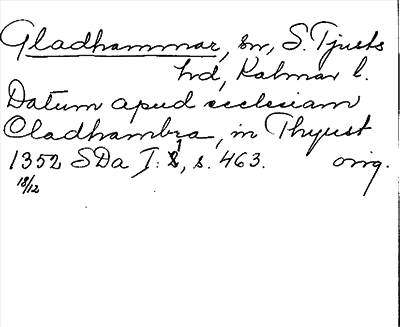 Gladhammar, sn, S. Tjusts
hd, Kalmar l.
Datum apud ecclesiam
Cladhambra, in Thyust
1352 SDa I: 1, s. 463. orig.
18/12